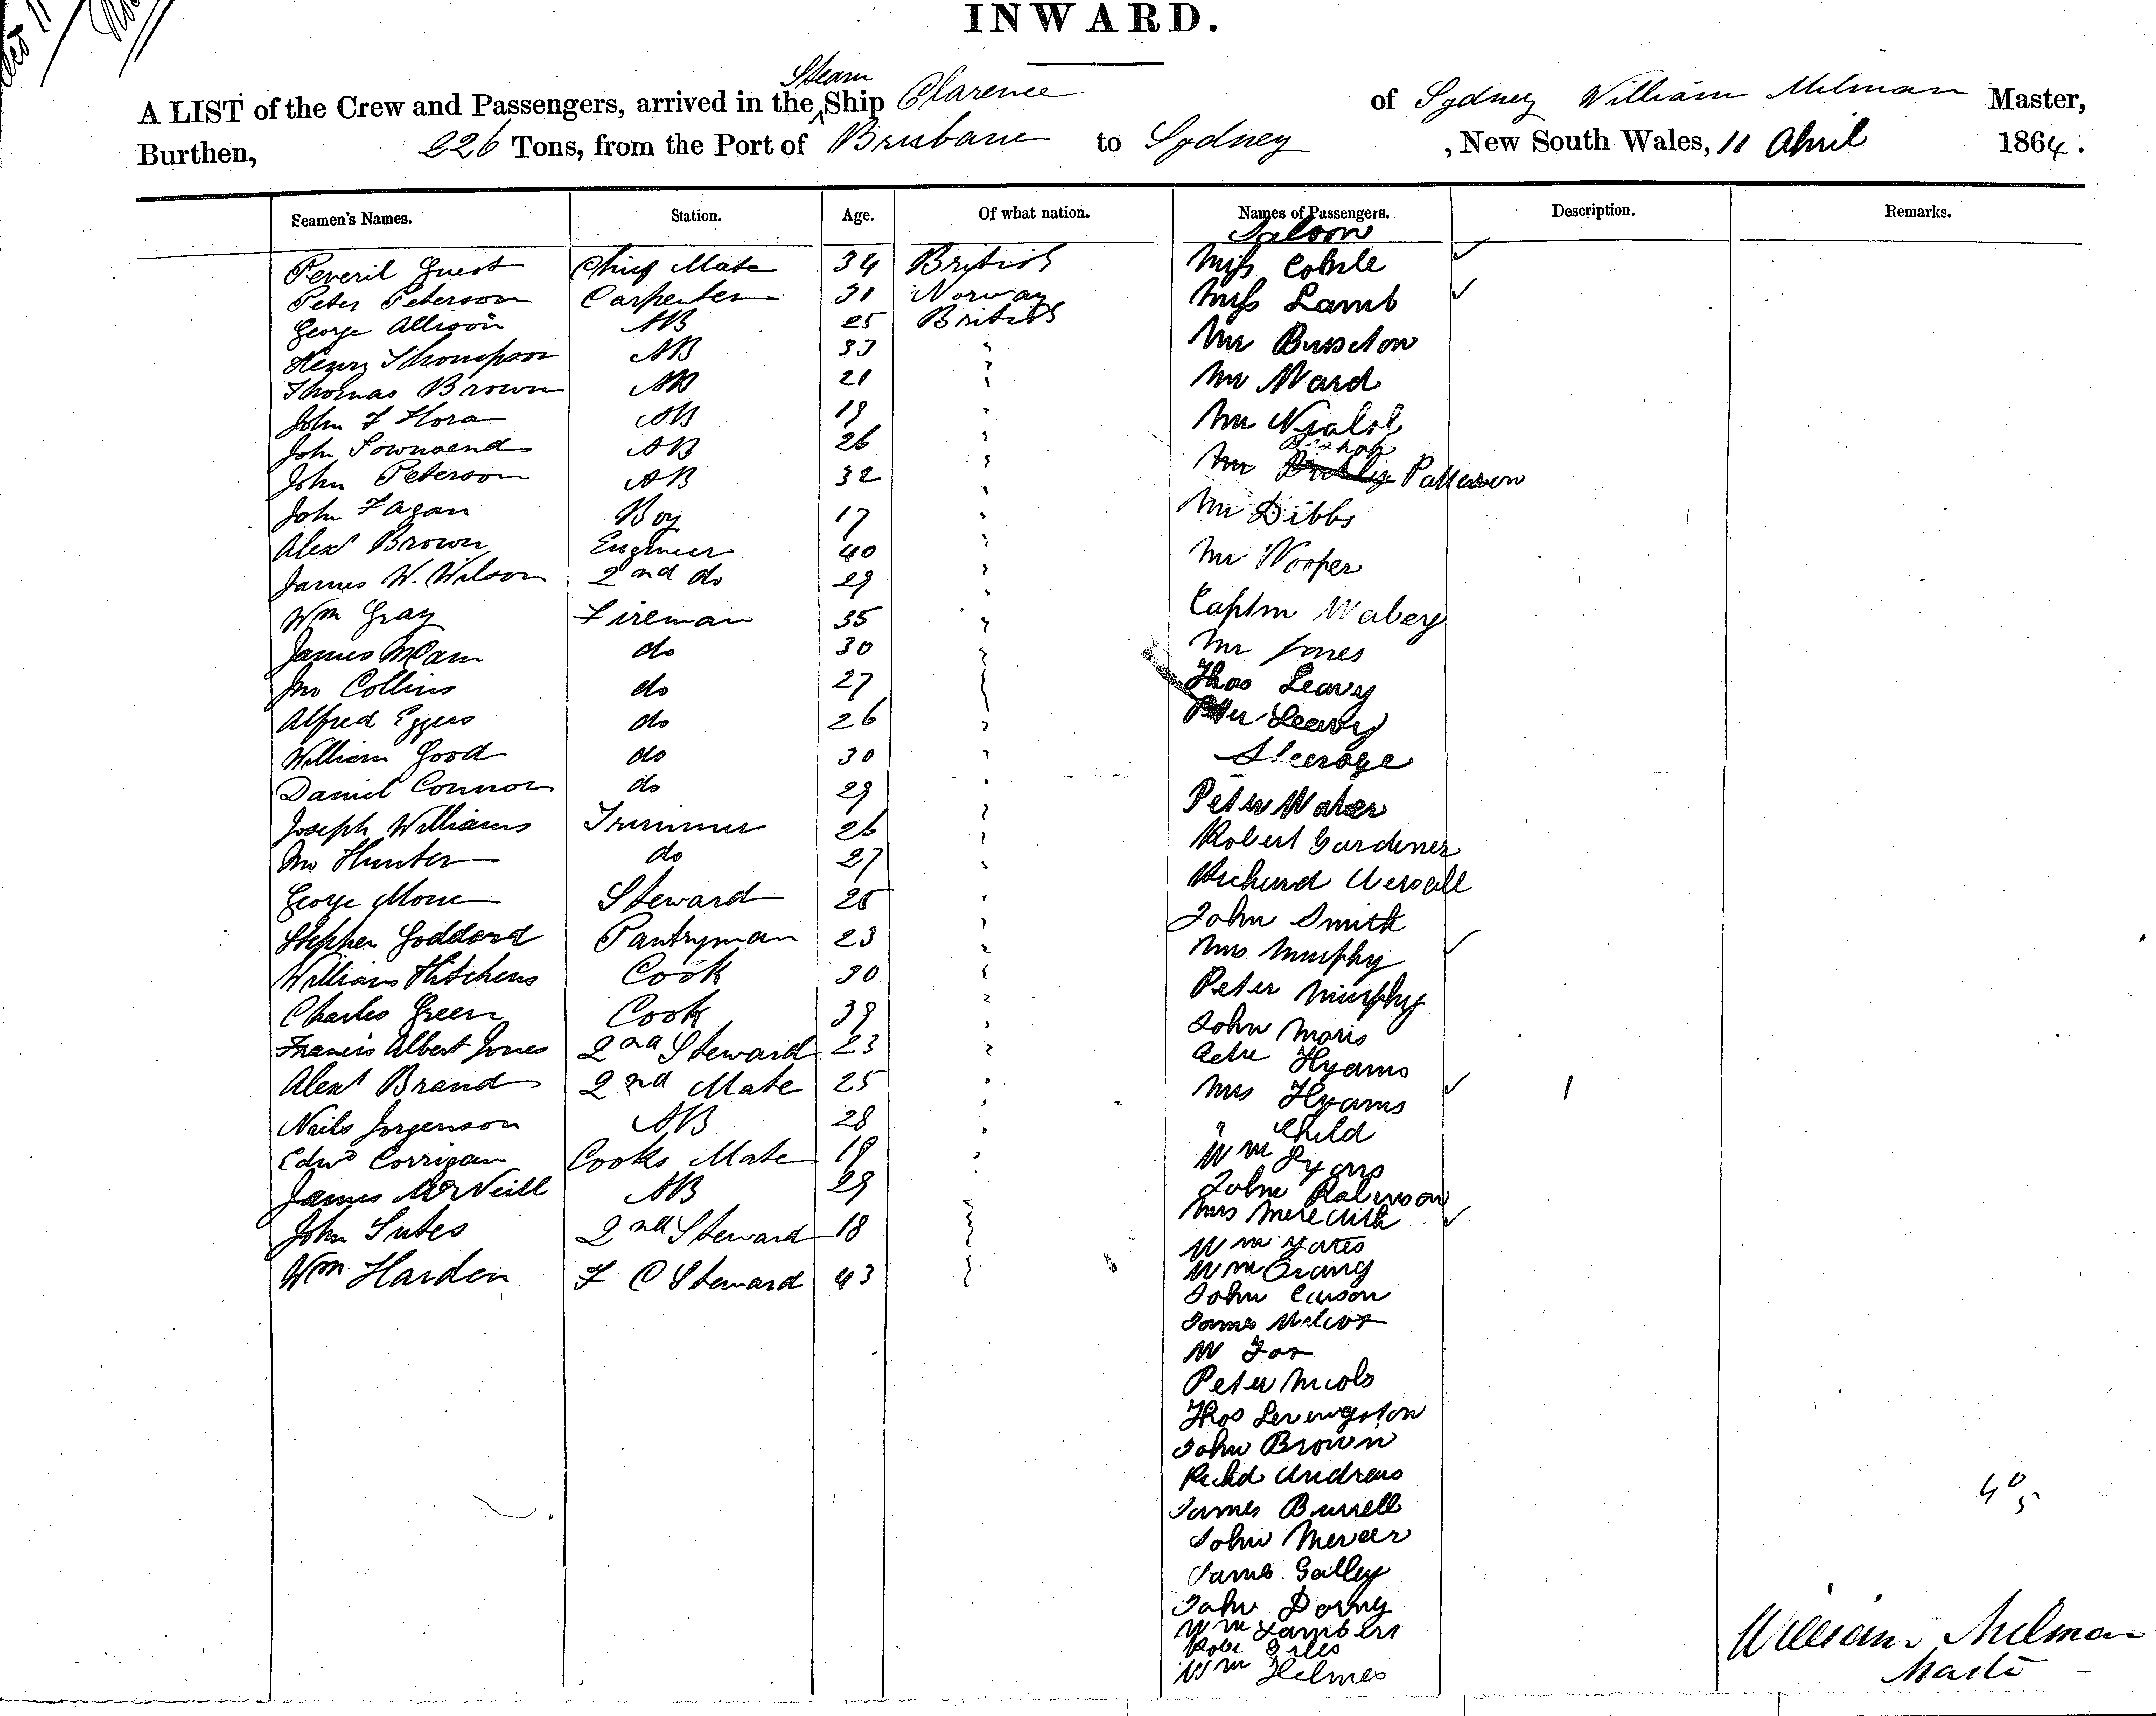 INWARD.
A LIST of the Crew and Passengers, arrived in the Steam Ship Clarence of Sydney William Milman Master,
Burthen, 226 Tons, from the Port of Brisbane to Sydney , New South Wales, 11 April 1864.
Seamen's Names. Station. Age. Of what nation. Names of Passengers. Description. Remarks.
Saloon
Peveril Guest Chief Mate 34 British Miss
Peter Peterson Carpenter 31 Norway Miss Lamb
George Allison AB 25 British Mr
Henry Thompson AB 33 " Mr Ward
Thomas Brown AB 21 " Mr
John F Hora AB 19 "
John Townsend AB 26 " Mr Bishop Patterson
John Peterson AB 32 " Mr Dibbs
John Fagan Boy 17 " Mr
Alexr Brown Engineer 40 " Captn
James W. Wilson 2nd do 29 " Mr Jones
Wm Gray Fireman 35 " Thos Leavy
James McCam do 30 " Leavy
Jno Collins do 27 " Steerage
Alfred Eggers do 26 " Peter Water
William Good do 30 " Robert Gardiner
Daniel Connor do 29 " Richard
Joseph Williams Trimmer 26 " John Smith
Jno Hunter do 27 " Mrs Murphy
George Mone Steward 25 " Peter Murphy
Stephen Goddard Pantryman 23 " John Moris
William Hitchens Cook 30 " Hyams
Charles Green Cook 39 " Mrs Hyams
Francis Albert Jones 2nd Steward 23 " " Child
Alexr Brand 2nd Mate 25 " Wm Lyons
Neils Jorgenson AB 28 " John Robinson
Edwd Corrigan Cooks Mate 19 " Mrs Meredith
James McNeill AB 29 " Wm Yates
John Sutes 2nd Steward 18 " Wm
Wm Harden F C Steward 43 " John
James
W Fox
Peter Nicols
Thos Levingston
John Brown
Richd Andrews
James Burrell
John Mercer
James Galley
John Dorny
Wm Lambert
Robt Giles
Wm Helmes
40
5
William Milman
Master